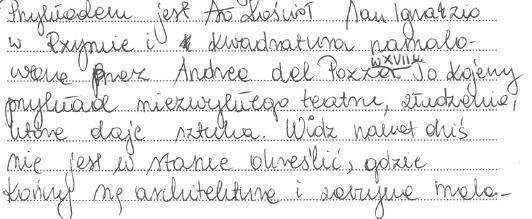 Przykładem jest to Kościół San Ignazio
w Rzymie i kwadratura namalo-
wana przez Andrea del Pozzo w XVII w. To kolejny
przykład niezwykłego teatru, złudzenia,
które daje sztuka. Widz nawet dziś
nie jest w stanie określić, gdzie
kończy się architektura i zaczyna mala-